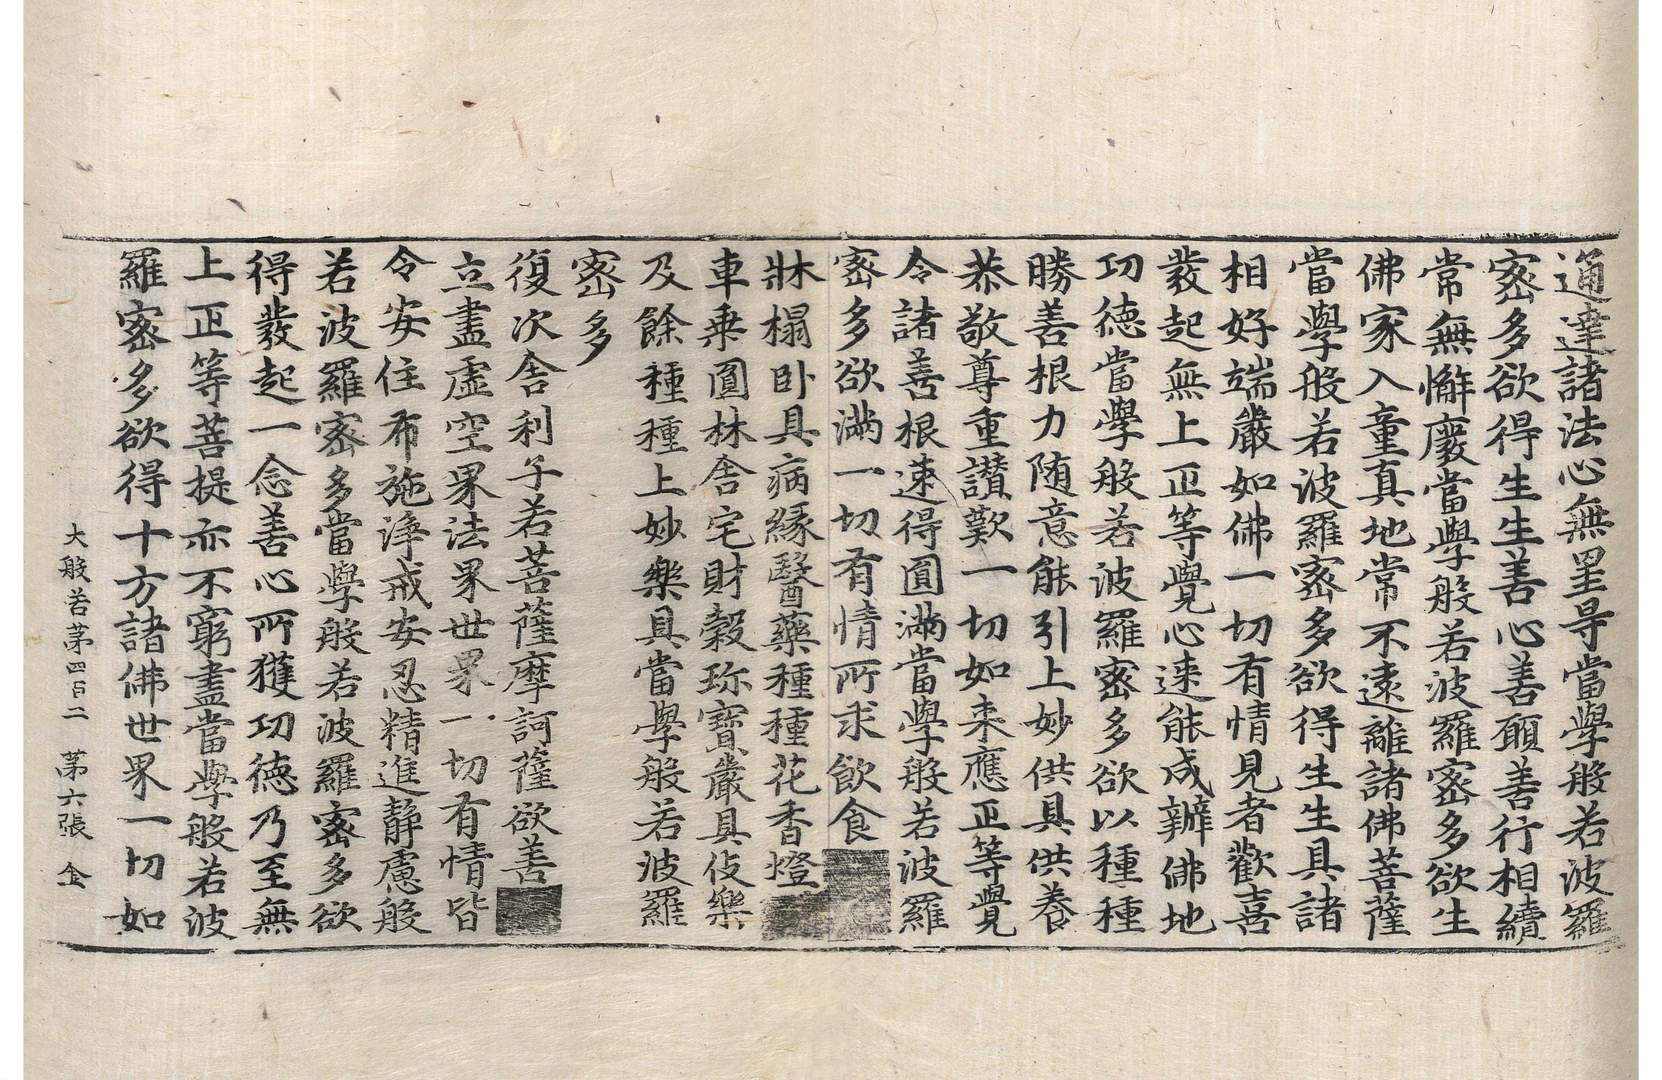 通達諸法心無罣㝵當學般若波羅
密多欲得生生善心善願善行相續
常無懈廢當學般若波羅密多欲生
佛家入童真地常不遠離諸佛菩薩
當學般若波羅密多欲得生生具諸
相好端嚴如佛一切有情見者歡喜
發起無上正等覺心速能成辦佛地
功德當學般若波羅密多欲以種種
勝善根力随意能引上妙供具供養
恭敬尊重讃歎一切如来應正等覺
令諸善根速得圓滿當學般若波羅
密多欲滿一切有情所求飲食
牀榻卧具病縁醫藥種種花香燈
車乗園林舍宅財穀珎寶嚴具伎樂
及餘種種上妙樂具當學般若波羅
密多
復次舍利子若菩薩摩訶薩欲善
立盡虛空界法界世界一切有情皆
令安住布施淨戒安忍精進靜慮般
若波羅密多當學般若波羅密多欲
得發起一念善心所獲功德乃至無
上正等菩提亦不窮盡當學般若波
羅密多欲得十方諸佛世界一切如
大般若苐四百二　苐六張　金